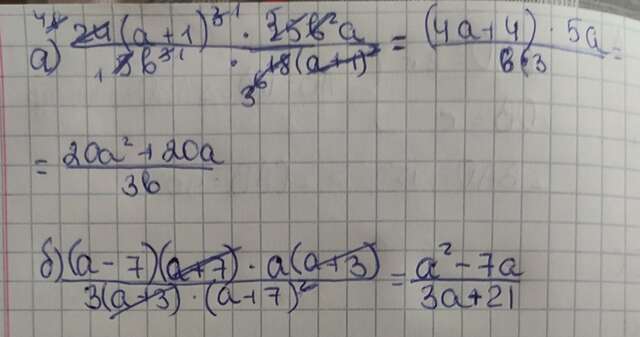 а) 24(a+1)³ / 5b³ · 25b²a / 18(a+1)² = (4a+4)·5a / b·3 =
= 20a²+20a / 3b
б) (a-7)(a+7)·a(a+3) / 3(a+3)·(a+7)² = a²-7a / 3a+21